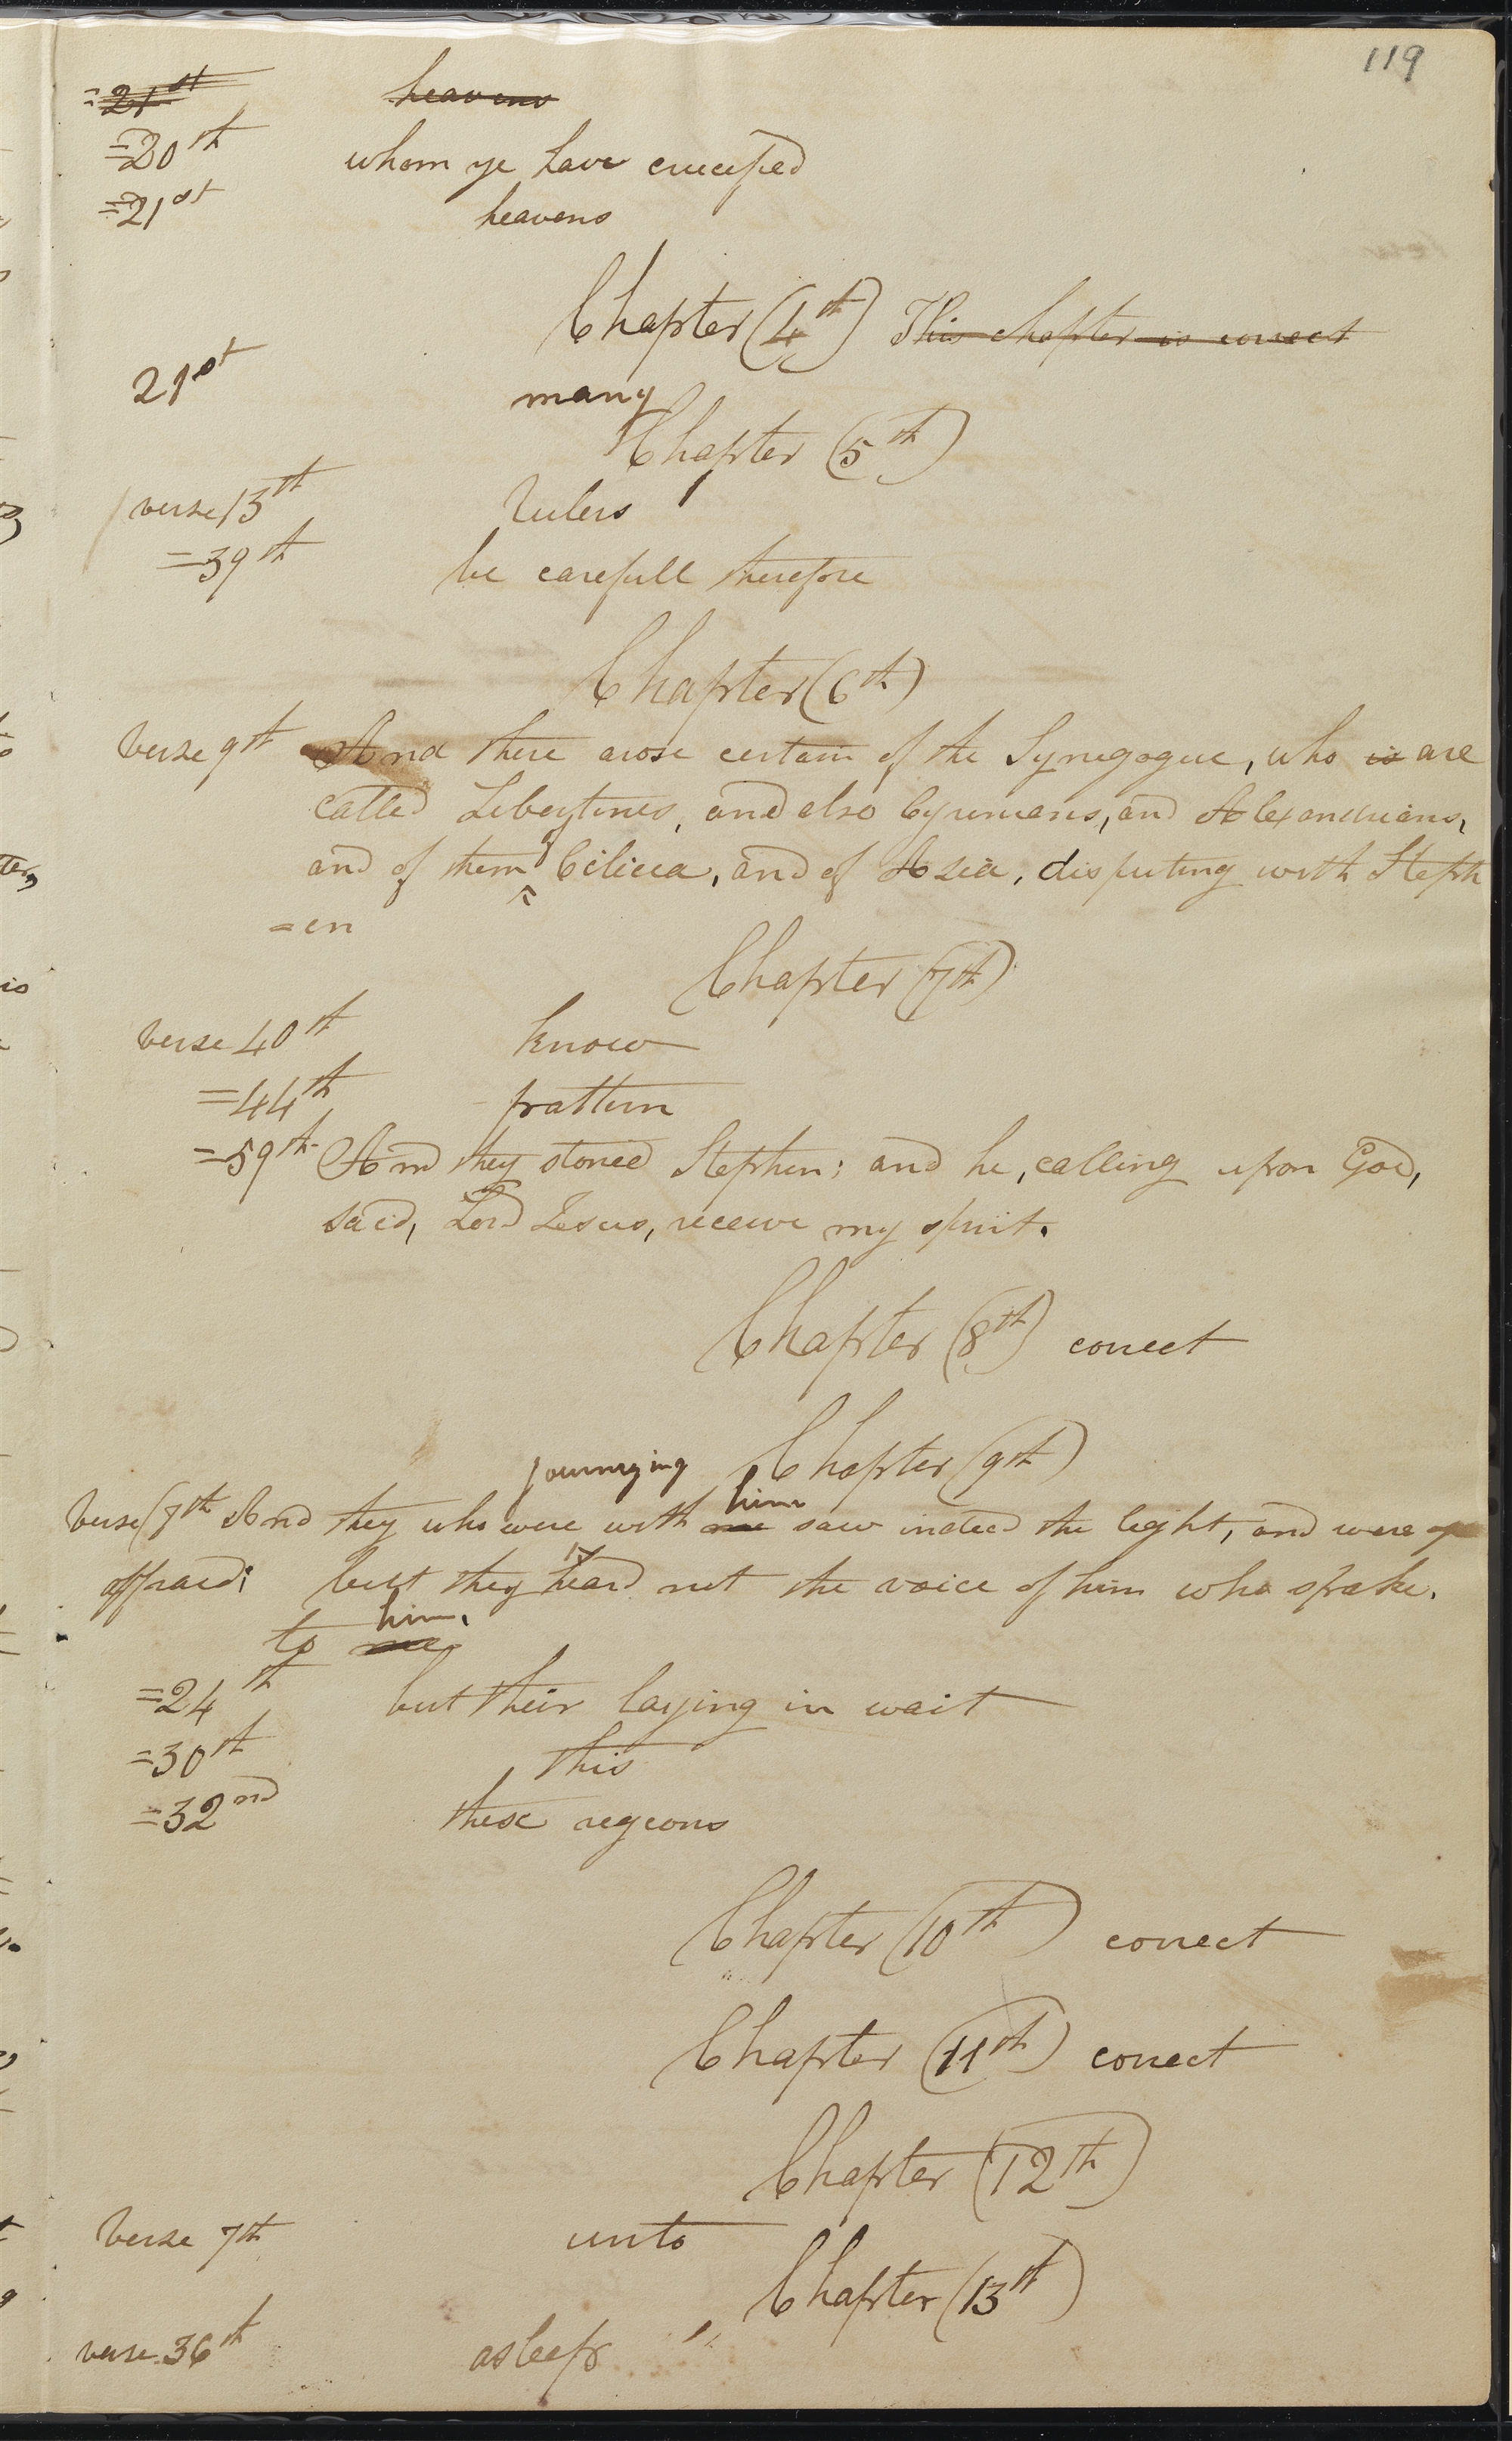 119
=21st heavens
=20th whom ye have crucified
=21st heavens
Chapter (4th) This chapter is correct
21st many
Chapter (5th)
verse 13th Rulers
=39th be carefull therefore
Chapter (6th)
Verse 9th And there arose certain of the Synegogue, who is are
called Libertines, and also Cyrenians, and Alexandrians,
and of them of Cilicia, and of Asia, disputing with Steph
=en
Chapter (7th)
Verse 40th know
=44th pattern
=59th And they stoned Stephen; and he, calling upon God,
said, Lord Jesus, receive my spirit.
Chapter (8th) correct
Chapter (9th)
journeying him
Verse (7th And they who were with me saw indeed the light, and were
affraid; but they heard not the voice of him who spake.
him.
to me
=24th but their laying in wait
=30th this
=32nd these regions
Chapter (10th) correct
Chapter (11th) correct
Chapter (12th)
Verse 7th unto
Chapter (13th)
verse 36th asleep